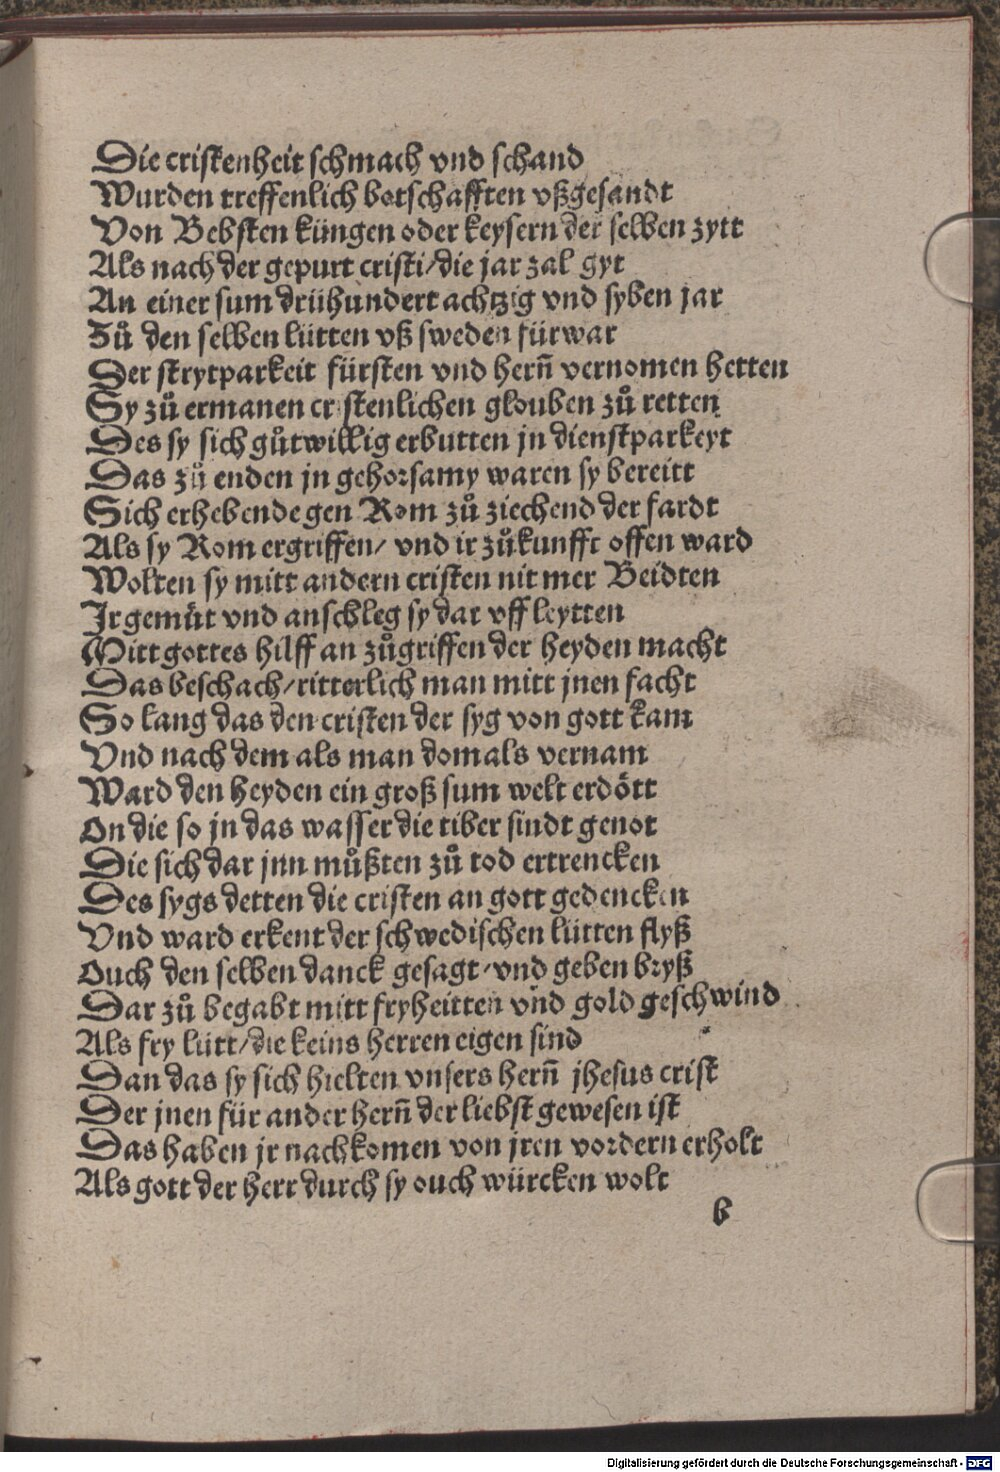 Die cristenheit schmach vnd schand
Wurden treffenlich botschafften vßgesandt
Von Bebsten küngen oder keysern der selben zytt
Als nach der gepurt cristi/die jar zal gyt
An einer sum drühundert achtzig vnd syben jar
Zů den selben lütten vß sweden fürwar
Der strytparkeit fürsten vnd hern̄ vernomen hetten
Sy zů ermanen cristenlichen glouben zů retten
Des sy sich gůtwillig erbutten jn dienstparkeyt
Das zů enden jn gehorsamy waren sy bereitt
Sich erhebende gen Rom zů ziechend der fardt
Als sy Rom ergriffen/ vnd ir zůkunfft offen ward
Wolten sy mitt andern cristen nit mer Beidten
Ir gemüt vnd anschleg sy dar vff leytten
Mitt gottes hilff an zůgriffen der heyden macht
Das beschach/ritterlich man mitt jnen facht
So lang das den cristen der syg von gott kam
Vnd nach dem als man domals vernam
Ward den heyden ein groß sum welt erdött
On die so jn das wasser die tiber sindt genot
Die sich dar jnn můßten zů tod ertrencken
Des sygs detten die cristen an gott gedencken
Vnd ward erkent der schwedischen lütten flyß
Ouch den selben danck gesagt/vnd geben bryß
Dar zů begabt mitt fryheitten vnd gold geschwind
Als fry lütt/die keins herren eigen sind
Dan das sy sich hielten vnsers hern̄ jhesus crist
Der jnen für ander hern̄ der liebst gewesen ist
Das haben jr nachkomen von jren vordern erholt
Als gott der herr durch sy ouch würcken wolt
b
Digitalisierung gefördert durch die Deutsche Forschungsgemeinschaft - DFG